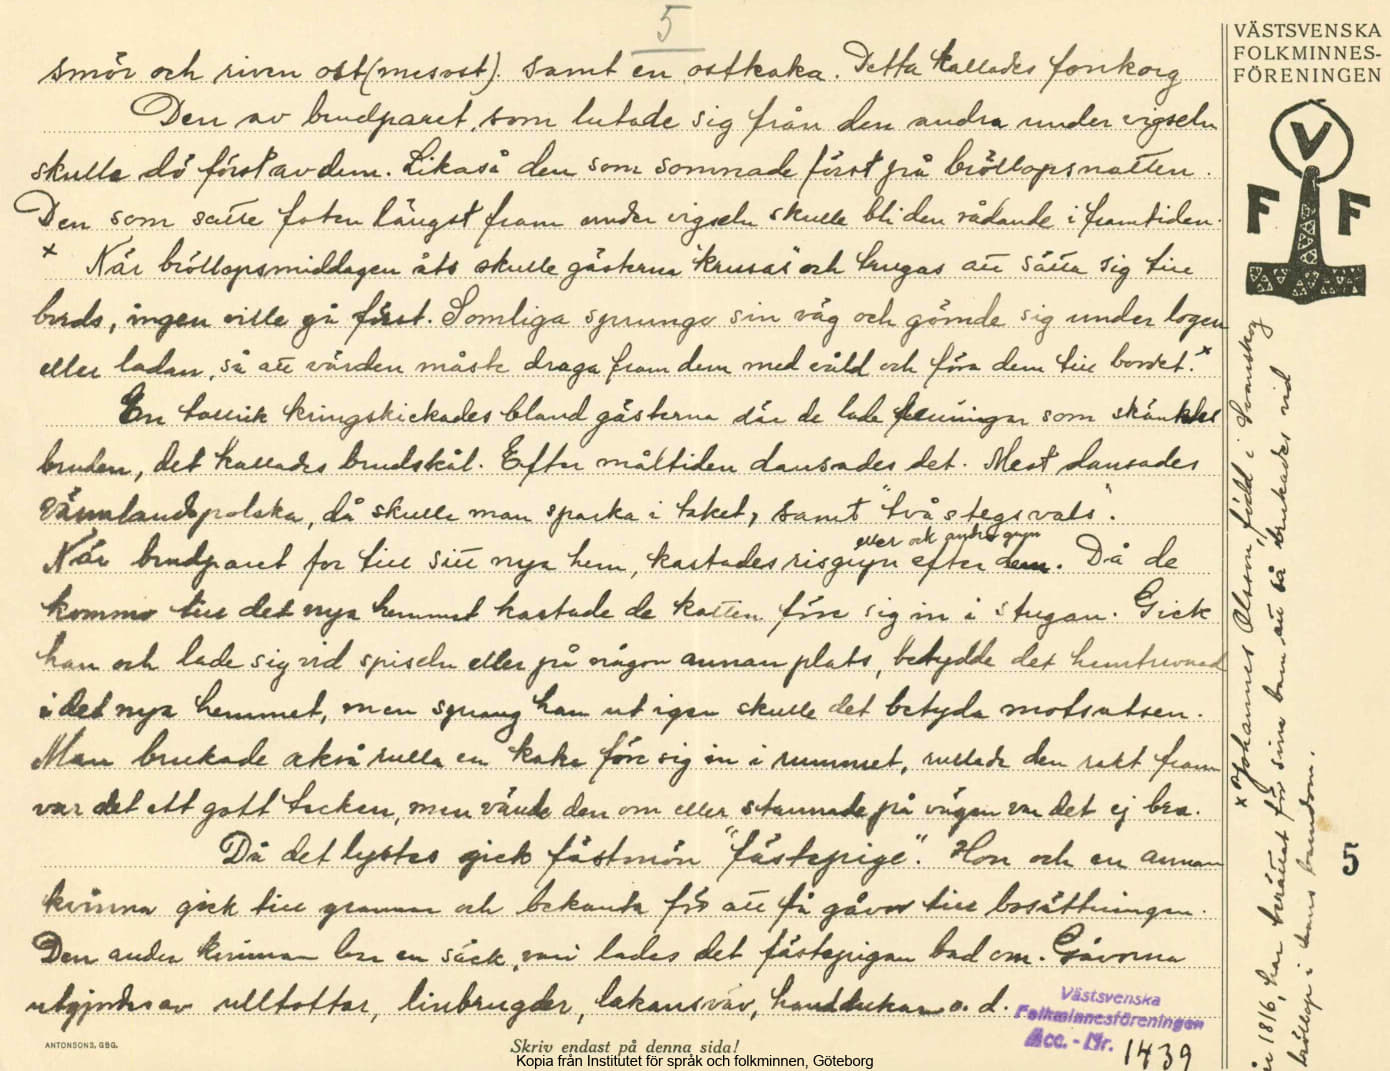 5
smör och riven ost (mesost). samt en ostkaka. Detta kallades fonkorg
Den av brudparet, som lutade sig från den andra under vigseln
skulle dö först av dem. Likaså den som somnade först på bröllopsnatten.
Den som satte foten längst fram under vigseln skulle bli den rådande i framtiden.
x När bröllopsmiddagen åts skulle gästerna "krusas" och trugas att sätta sig till
bords, ingen ville gå först. Somliga sprungo sin väg och gömde sig under logen
eller ladan, så att värden måste draga fram dem med våld och föra dem till bordet. x
En tallrik kringskickades bland gästerna där de lade penningar som skänktes
bruden, det kallades brudskål. Efter måltiden dansades det. Mest dansades
Värmlandspolska, då skulle man sparka i taket, samt "två stegs vals".
eller ock andra gryn
När brudparet for till sitt nya hem, kastades risgryn efter dem. Då de
kommo till det nya hemmet kastade de katten före sig in i stugan. Gick
han och lade sig vid spiseln eller på någon annan plats, betydde det hemtrevnad
i det nya hemmet, men sprang han ut igen skulle det betyda motsatsen.
Man brukade också rulla en kaka före sig in i rummet, rullade den rakt fram
var det ett gott tecken, men vände den om eller stannade på vägen var det ej bra.
Då det lystes gick fästmön "fästepige". Hon och en annan
kvinna gick till grannar och bekanta för att få gåvor till bosättningen.
Den andra kvinnan bar en säck, vari lades det fästepigan bad om. Gåvorna
utgjordes av ulltottar, linbrugder, lakansväv, handdukar o. d.
VÄSTSVENSKA
FOLKMINNES-
FÖRENINGEN
V
F F
x Johannes Olsson, född i Svanskog
år 1816, har berättat för sina barn att så brukades vid
bröllop i hans barndom.
5
Västsvenska
Folkminnesföreningen
Acc. - Nr. 1439
ANTONSONS, GBG.
Skriv endast på denna sida!
Kopia från Institutet för språk och folkminnen, Göteborg